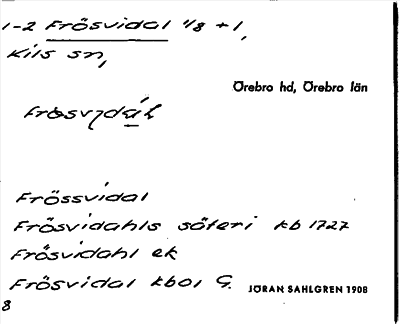 1-2 Frösvidal 1/8 + 1,
Kils sn,
Örebro hd, Örebro län
Frössvidal
Frösvidahls säteri kb 1727
Frösvidahl ek
Frösvidal kbol G.
JÖRAN SAHLGREN 1908
8